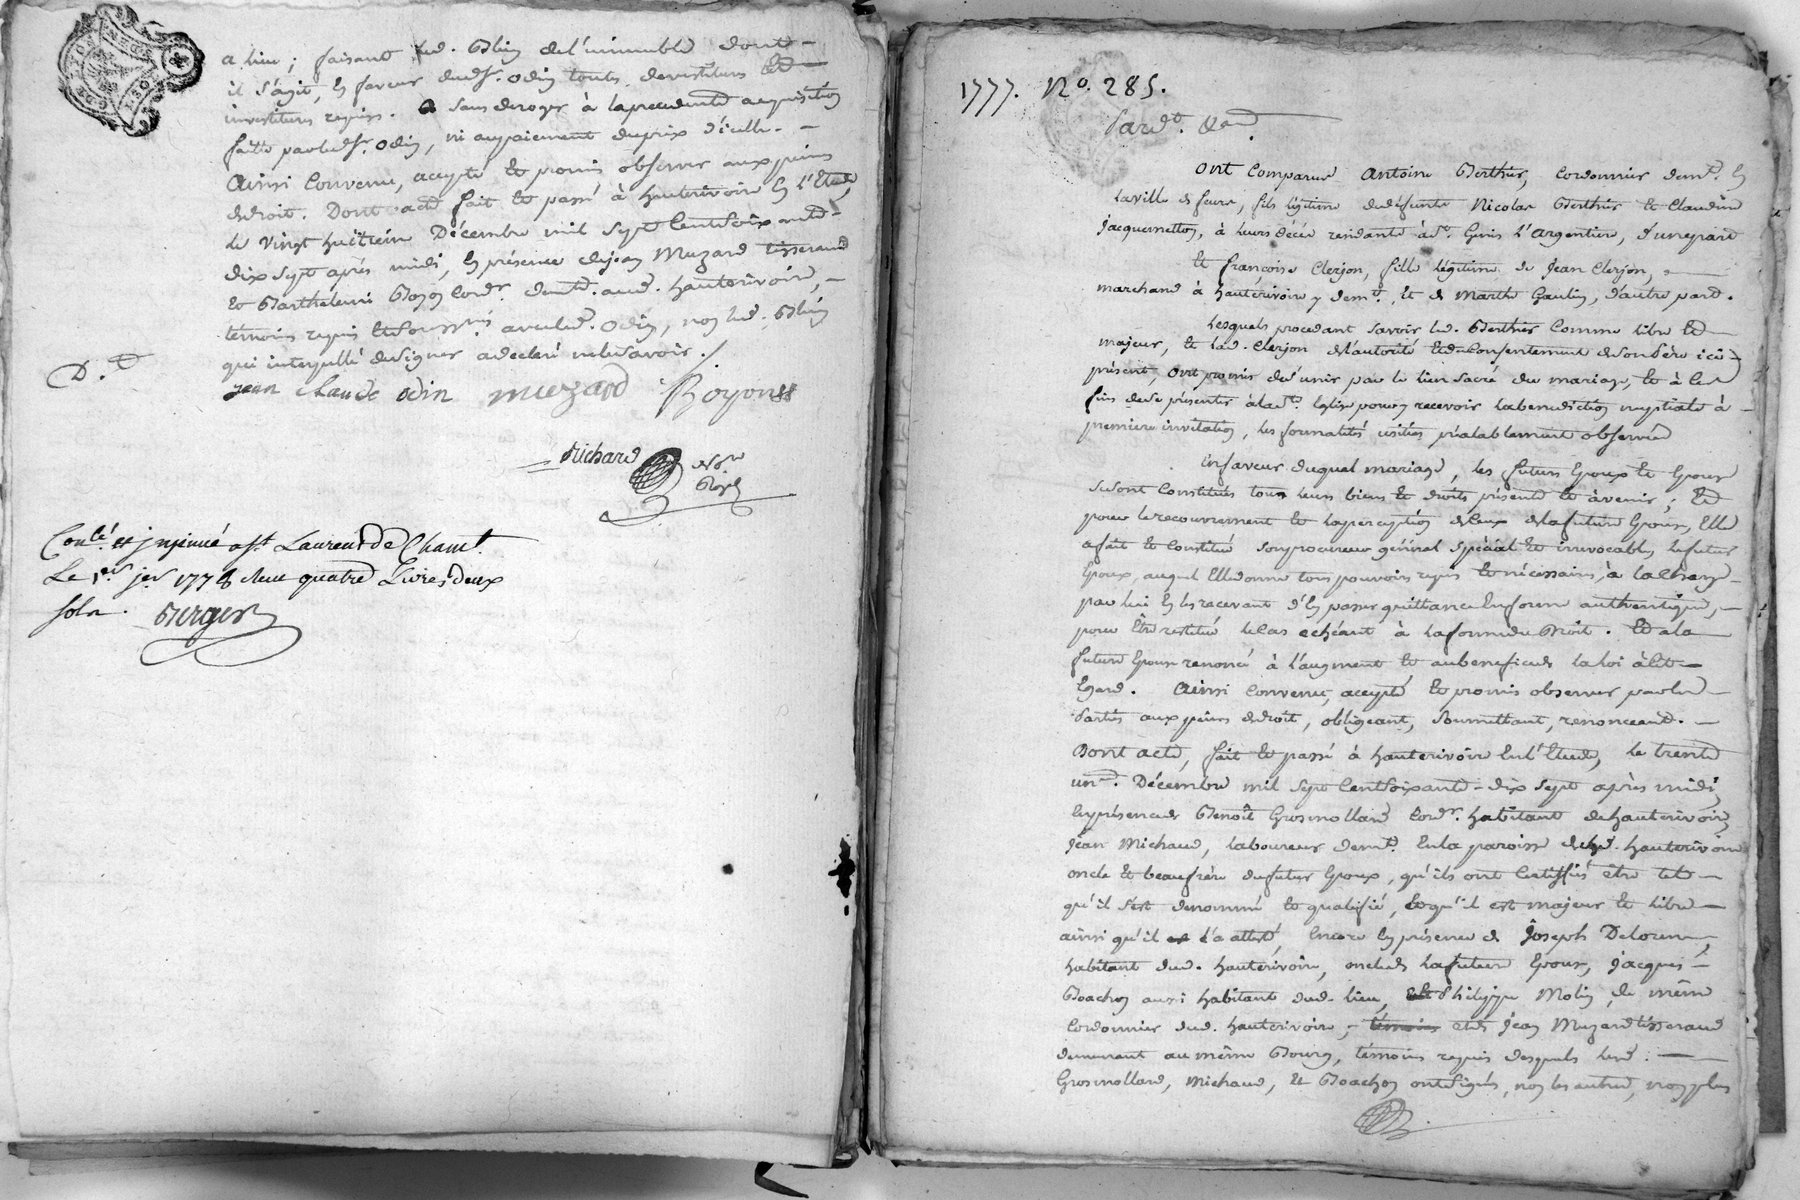 a lieu; faisant led. Blein de l'immeuble dont
il s'agit, en faveur dud. sr. Odin toutes devestitures et
investitures requises. sans deroger à la precedente acquisition
faitte par led. sr. Odin, ni au paiement du prix d'icelle.
Ainsi convenu, accepté et promis observer aux peines
de droit. Dont acte fait et passé à hauterivoire en l'Etude,
le vingt huitieme Décembre mil sept cent soixante
dix sept après midi, en présence de jean Muzard tisserand
et Barthelemi Boyon cordr. demt. aud. hauterivoire,
témoins requis et soussignés avec led. sr. Odin, non led. Blein
qui interpellé de signer a declaré ne le savoir.
D.t
jean Claude odin muzard Boyon
Richard
Nore
Royal
Conlé. et insinué a St Laurent de Cham.t
Le 1er jer 1778 Reçu quatre Livres deux
sols. Berger
1777. No. 285.
Pardt. &a.
Ont comparu Antoine Berthier, cordonnier demt. en
la ville de feurs, fils légitime de defunts Nicolas Berthier et Claudine
Jacquemetton, à leurs décès residants à St. Genis l'Argentiere, d'une part
Et françoise Clerjon, fille légitime de Jean Clerjon,
marchand à hauterivoire y demt., et de Marthe Gaulin, d'autre part.
Lesquels procedant savoir led. Berthier comme libre et
majeur, et lad. Clerjon de l'autorité et du consentement de son Père ici
présent, ont promis de s'unir par le lien sacré du mariage, et à ces
fins de se présenter à la Ste. Eglise pour en recevoir la benediction nuptiale à
premiere invitation, les formalités usitées préalablement observées
En faveur duquel mariage, les futurs Epoux et Epouse
se sont constitués tous leurs biens et droits présents et à venir; Et
pour le recouvrement et la perception de ceux de la future Epouse, Elle
a fait et constitué son procureur général spécial et irrevocable, le futur
Epoux, auquel Elle donne tous pouvoirs requis et nécessaires, à la charge
par lui en les recevant d'en passer quittance en forme authentique,
pour Etre restitué le cas echéant à la forme du Droit. Et a la
future Epouse renoncé à l'augment et au benefice de la loi à cet
Egard. Ainsi convenu, accepté et promis observer par les
Parties aux peines de droit, obligeant, soumettant, renonceant.
Dont acte, fait et passé à hauterivoire en l'Etude, le trente
une. Décembre mil sept cent soixante-dix sept après midi,
en présence de Benoît Grosmollard cordr. habitant de hauterivoire,
Jean Michaud, laboureur demt. en la paroisse dud. hauterivoire
oncle et beaufrère du futur Epoux, qu'ils ont certiffié etre tel
qu'il s'est denommé et qualifié, et qu'il est majeur et libre
ainsi qu'il l'a attesté, encore en présence de Joseph Delorme,
habitant dud. hauterivoire, oncle de la future Epouse, Jacques
Boachon aussi habitant dud. lieu, Philippe Molin, de même
cordonnier dud. hauterivoire, témoins et de Jean Muzard tisserand
demeurant au même Bourg, témoins requis desquels lesd.
Grosmollard, Michaud, et Boachon ont signés, non les autres, non plus